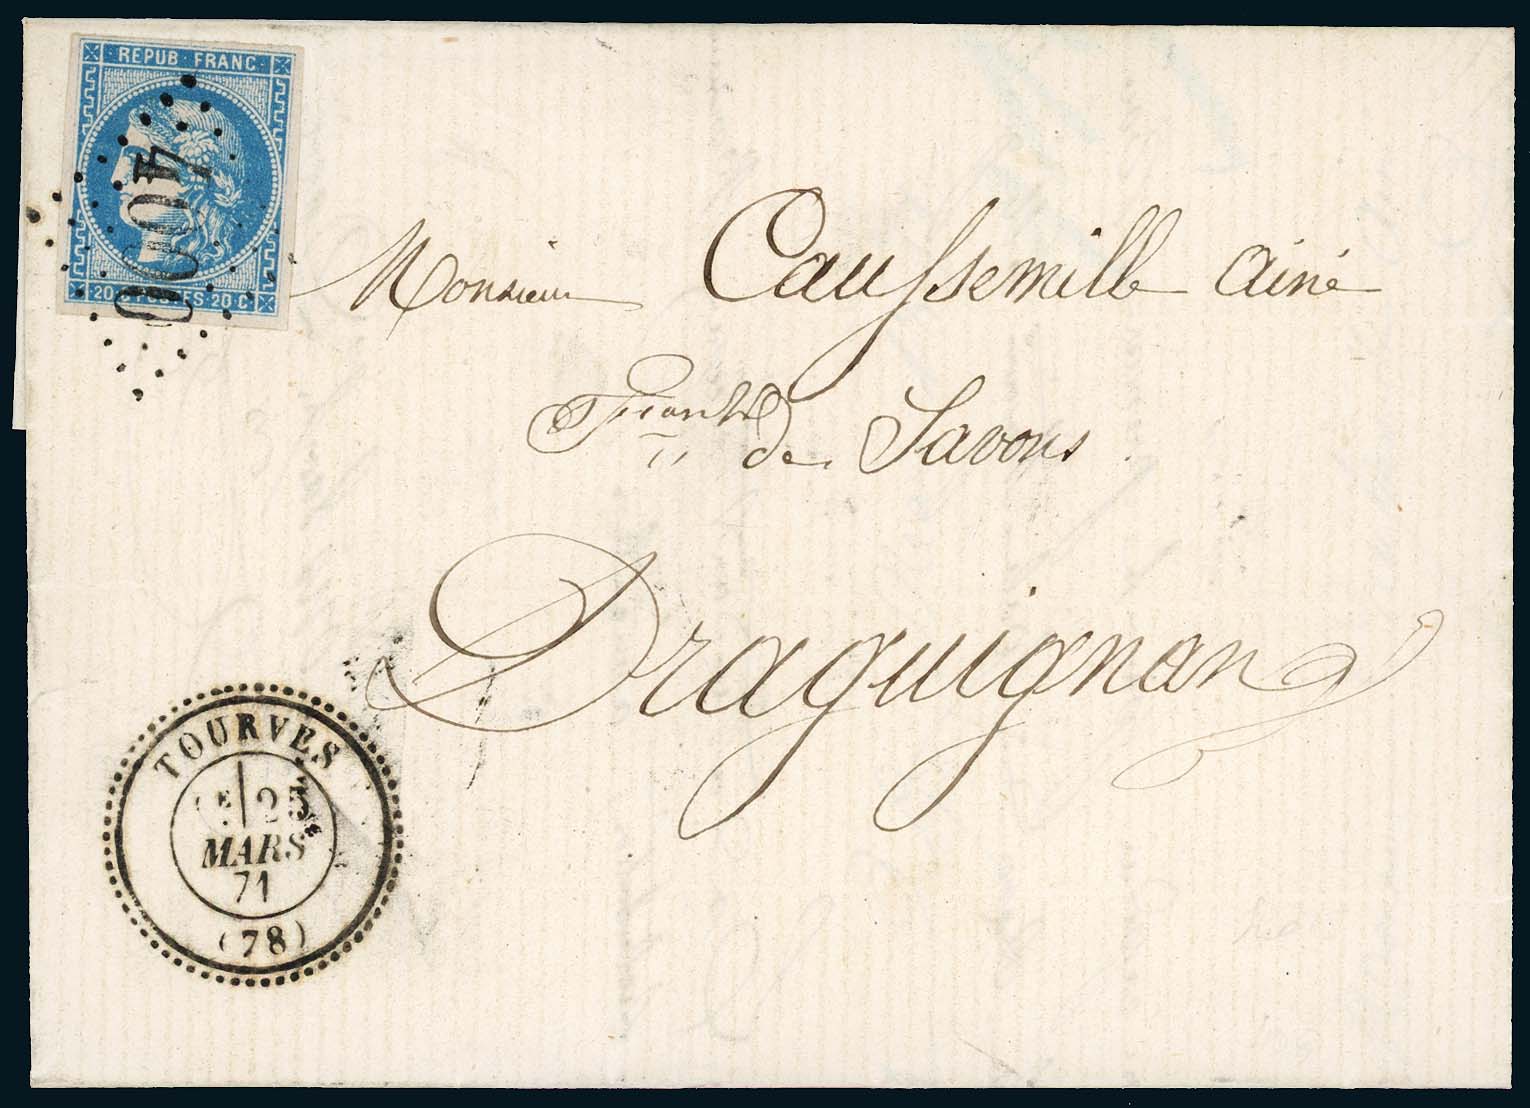 REPUB FRANC
20 C
20 C
4000
Monsieur Caussemille Ainé
de Savons
Draguignan
TOURVES
2E 23
MARS
71
(78)